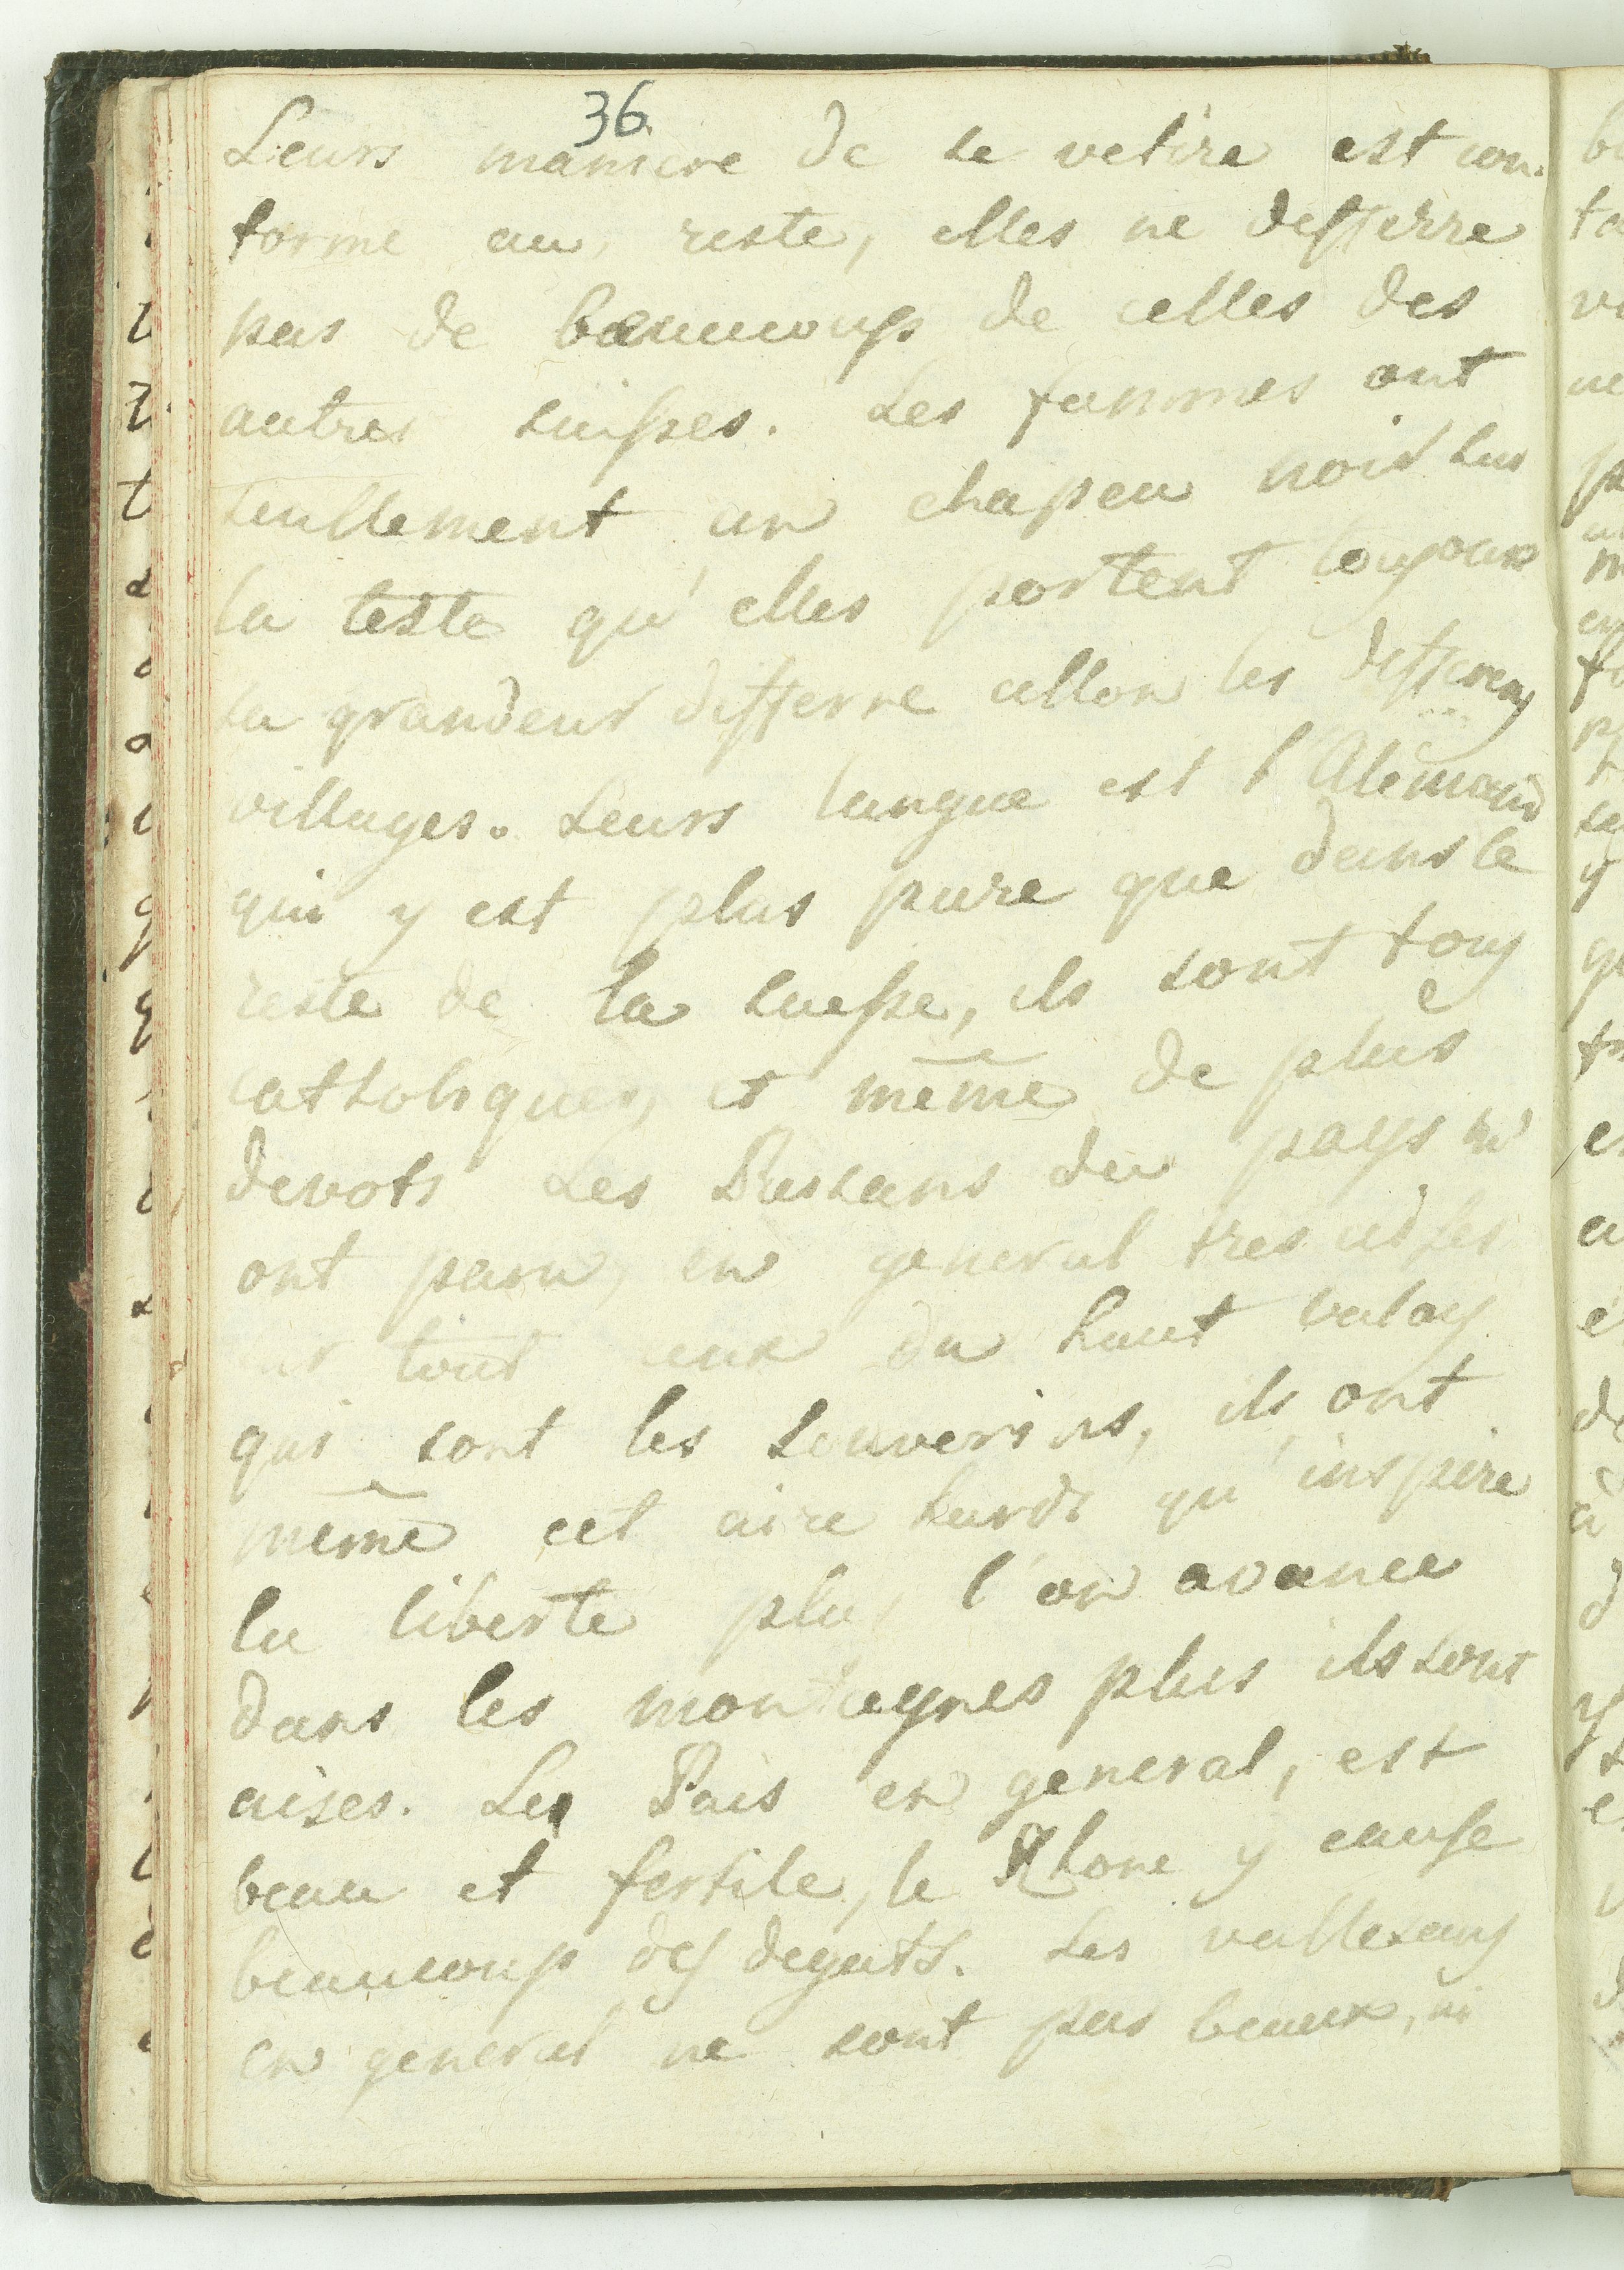 36
Leurs maniere de se vetire est con-
forme au reste, elles ne defferre
pas de beaucoups de celles des
autres suisses. Les fammes ont
seullement un chapeu noir sur
la teste qu'elles portent toujoux
sa grandeur differre cellon les differens
villages. Leurs langue est l'Alemand
qui y est plus pure que dans le
reste de la suesse, ils sont tous
catholiques, et même de plus
devots Les Paisans du pays m'
ont paru, en general tres aises
sur tout ceux du haut valay
qui sont les souverins, ils ont
même cet aire hardi qu'inspire
la liberte plus l'on avance
dans les montagnes plus ils sont
aises. Le Pais en general, est
beau et fertile, le Rhone y cause
beaucoup des degats. Les vallesans
en general ne sont pas beaux, ni